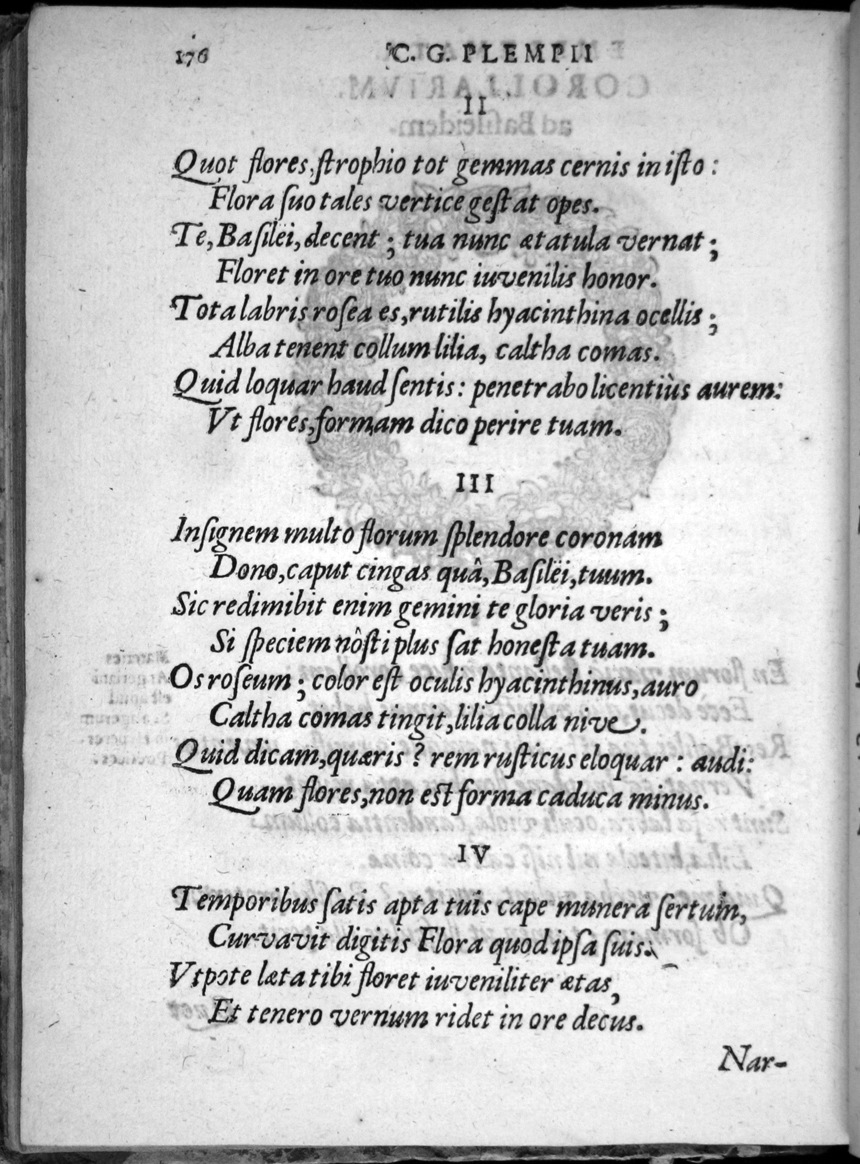 176 C. G. PLEMPII
II
Quot flores, ſtrophio tot gemmas cernis in iſto :
Flora ſuo tales vertice geſtat opes.
Te, Baſileï, decent ; tua nunc ætatula vernat ;
Floret in ore tuo nunc iuvenilis honor.
Tota labris roſea es, rutilis hyacinthina ocellis ;
Alba tenent collum lilia, caltha comas.
Quid loquar haud ſentis : penetrabo licentiùs aurem:
Vt flores, formam dico perire tuam.
III
Inſignem multo florum ſplendore coronam
Dono, caput cingas quâ, Baſileï, tuum.
Sic redimibit enim gemini te gloria veris ;
Si ſpeciem nôſti plus ſat honeſta tuam.
Os roſeum ; color eſt oculis hyacinthinus, auro
Caltha comas tingit, lilia colla nive.
Quid dicam, quæris ? rem ruſticus eloquar : audi:
Quam flores, non eſt forma caduca minus.
IV
Temporibus ſatis apta tuis cape munera ſertum,
Curvavit digitis Flora quod ipſa ſuis.
Vtpote læta tibi floret iuveniliter ætas,
Et tenero vernum ridet in ore decus.
Nar-